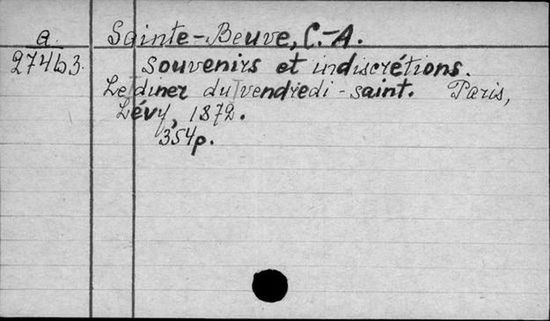 a. Sainte-Beuve, C.-A.
27463. Souvenirs et indiscrétions.
Le dîner du vendredi-saint. Paris,
Lévy, 1872.
354p.